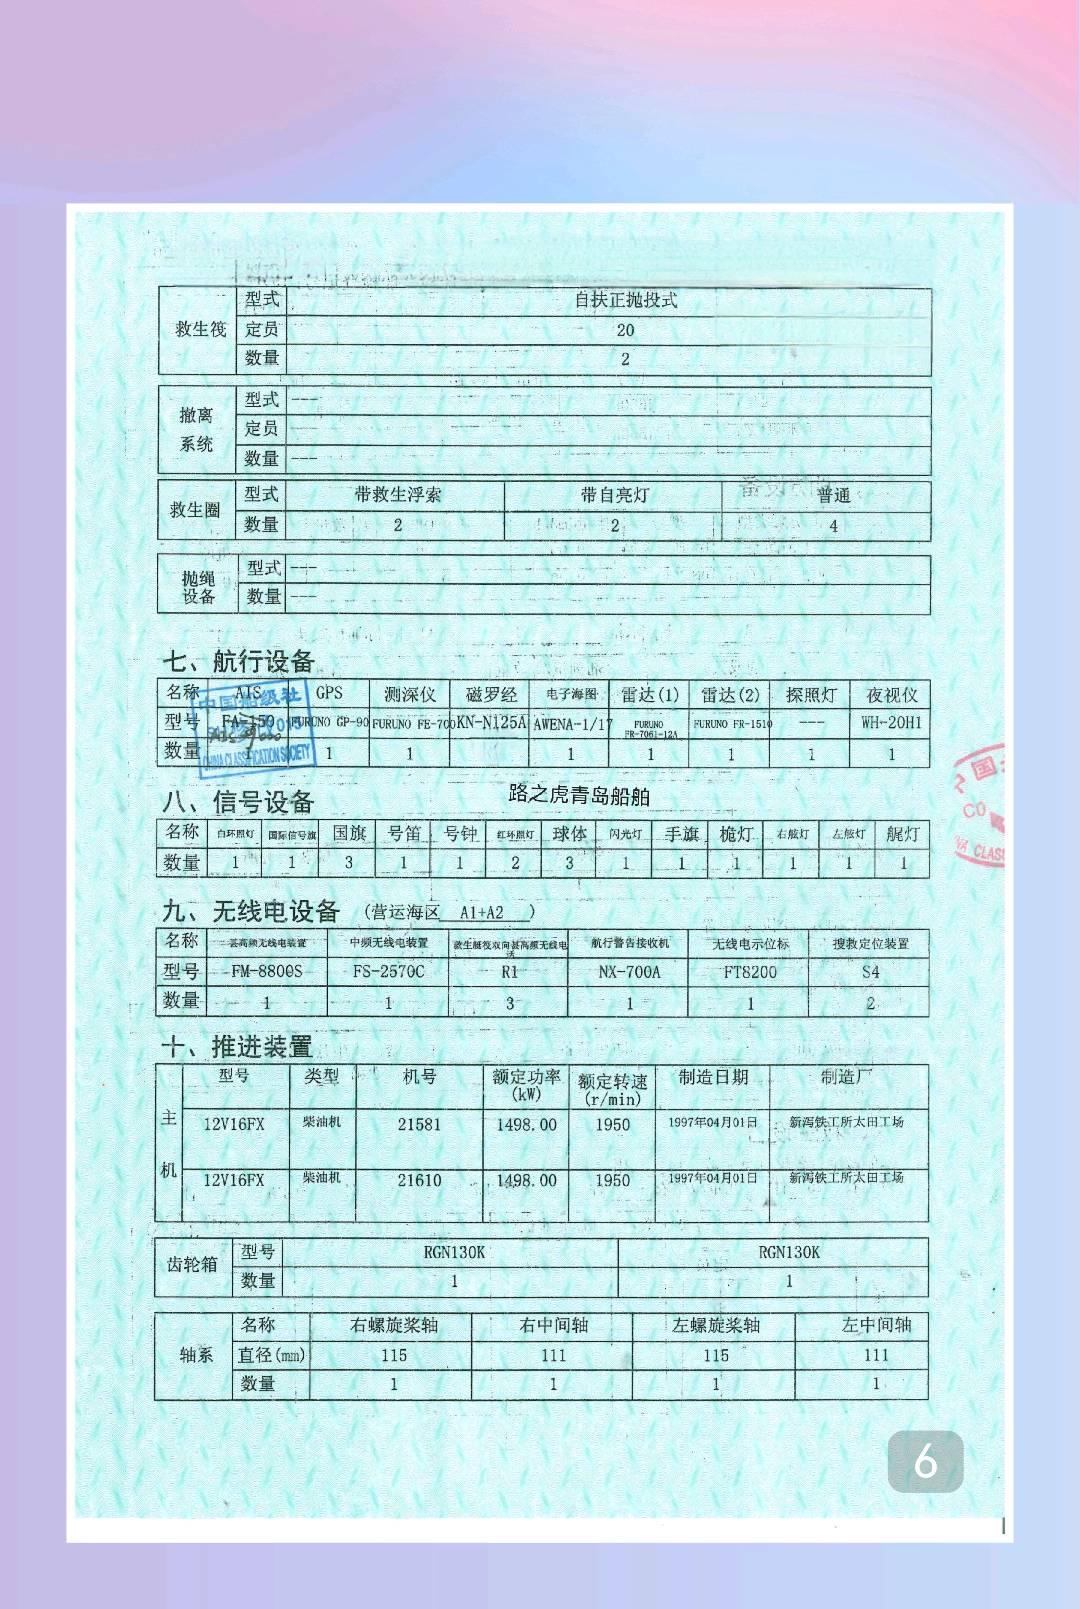 救生筏 型式 自扶正抛投式
定员 20
数量 2
撤离系统 型式 ---
定员 ---
数量 ---
救生圈 型式 带救生浮索 带自亮灯 普通
数量 2 2 4
抛绳设备 型式 ---
数量 ---
七、航行设备
名称 AIS GPS 测深仪 磁罗经 电子海图 雷达(1) 雷达(2) 探照灯 夜视仪
型号 FA-150 FURUNO GP-90 FURUNO FE-700 KN-N125A AWENA-1/17 FURUNO FR-7061-12A FURUNO FR-1510 --- WH-20H1
数量 1 1 1 1 1 1 1 1
中国船级社
CHINA CLASSIFICATION SOCIETY
路之虎青岛船舶
八、信号设备
名称 白环照灯 国际信号旗 国旗 号笛 号钟 红环照灯 球体 闪光灯 手旗 桅灯 右舷灯 左舷灯 艉灯
数量 1 1 3 1 1 2 3 1 1 1 1 1 1
中国
CLAS
九、无线电设备 (营运海区 A1+A2 )
名称 甚高频无线电装置 中频无线电装置 救生艇筏双向甚高频无线电话 航行警告接收机 无线电示位标 搜救定位装置
型号 FM-8800S FS-2570C R1 NX-700A FT8200 S4
数量 1 1 3 1 1 2
十、推进装置
主机 型号 类型 机号 额定功率(kW) 额定转速(r/min) 制造日期 制造厂
12V16FX 柴油机 21581 1498.00 1950 1997年04月01日 新泻铁工所太田工场
12V16FX 柴油机 21610 1498.00 1950 1997年04月01日 新泻铁工所太田工场
齿轮箱 型号 RGN130K RGN130K
数量 1 1
轴系 名称 右螺旋桨轴 右中间轴 左螺旋桨轴 左中间轴
直径(mm) 115 111 115 111
数量 1 1 1 1
6